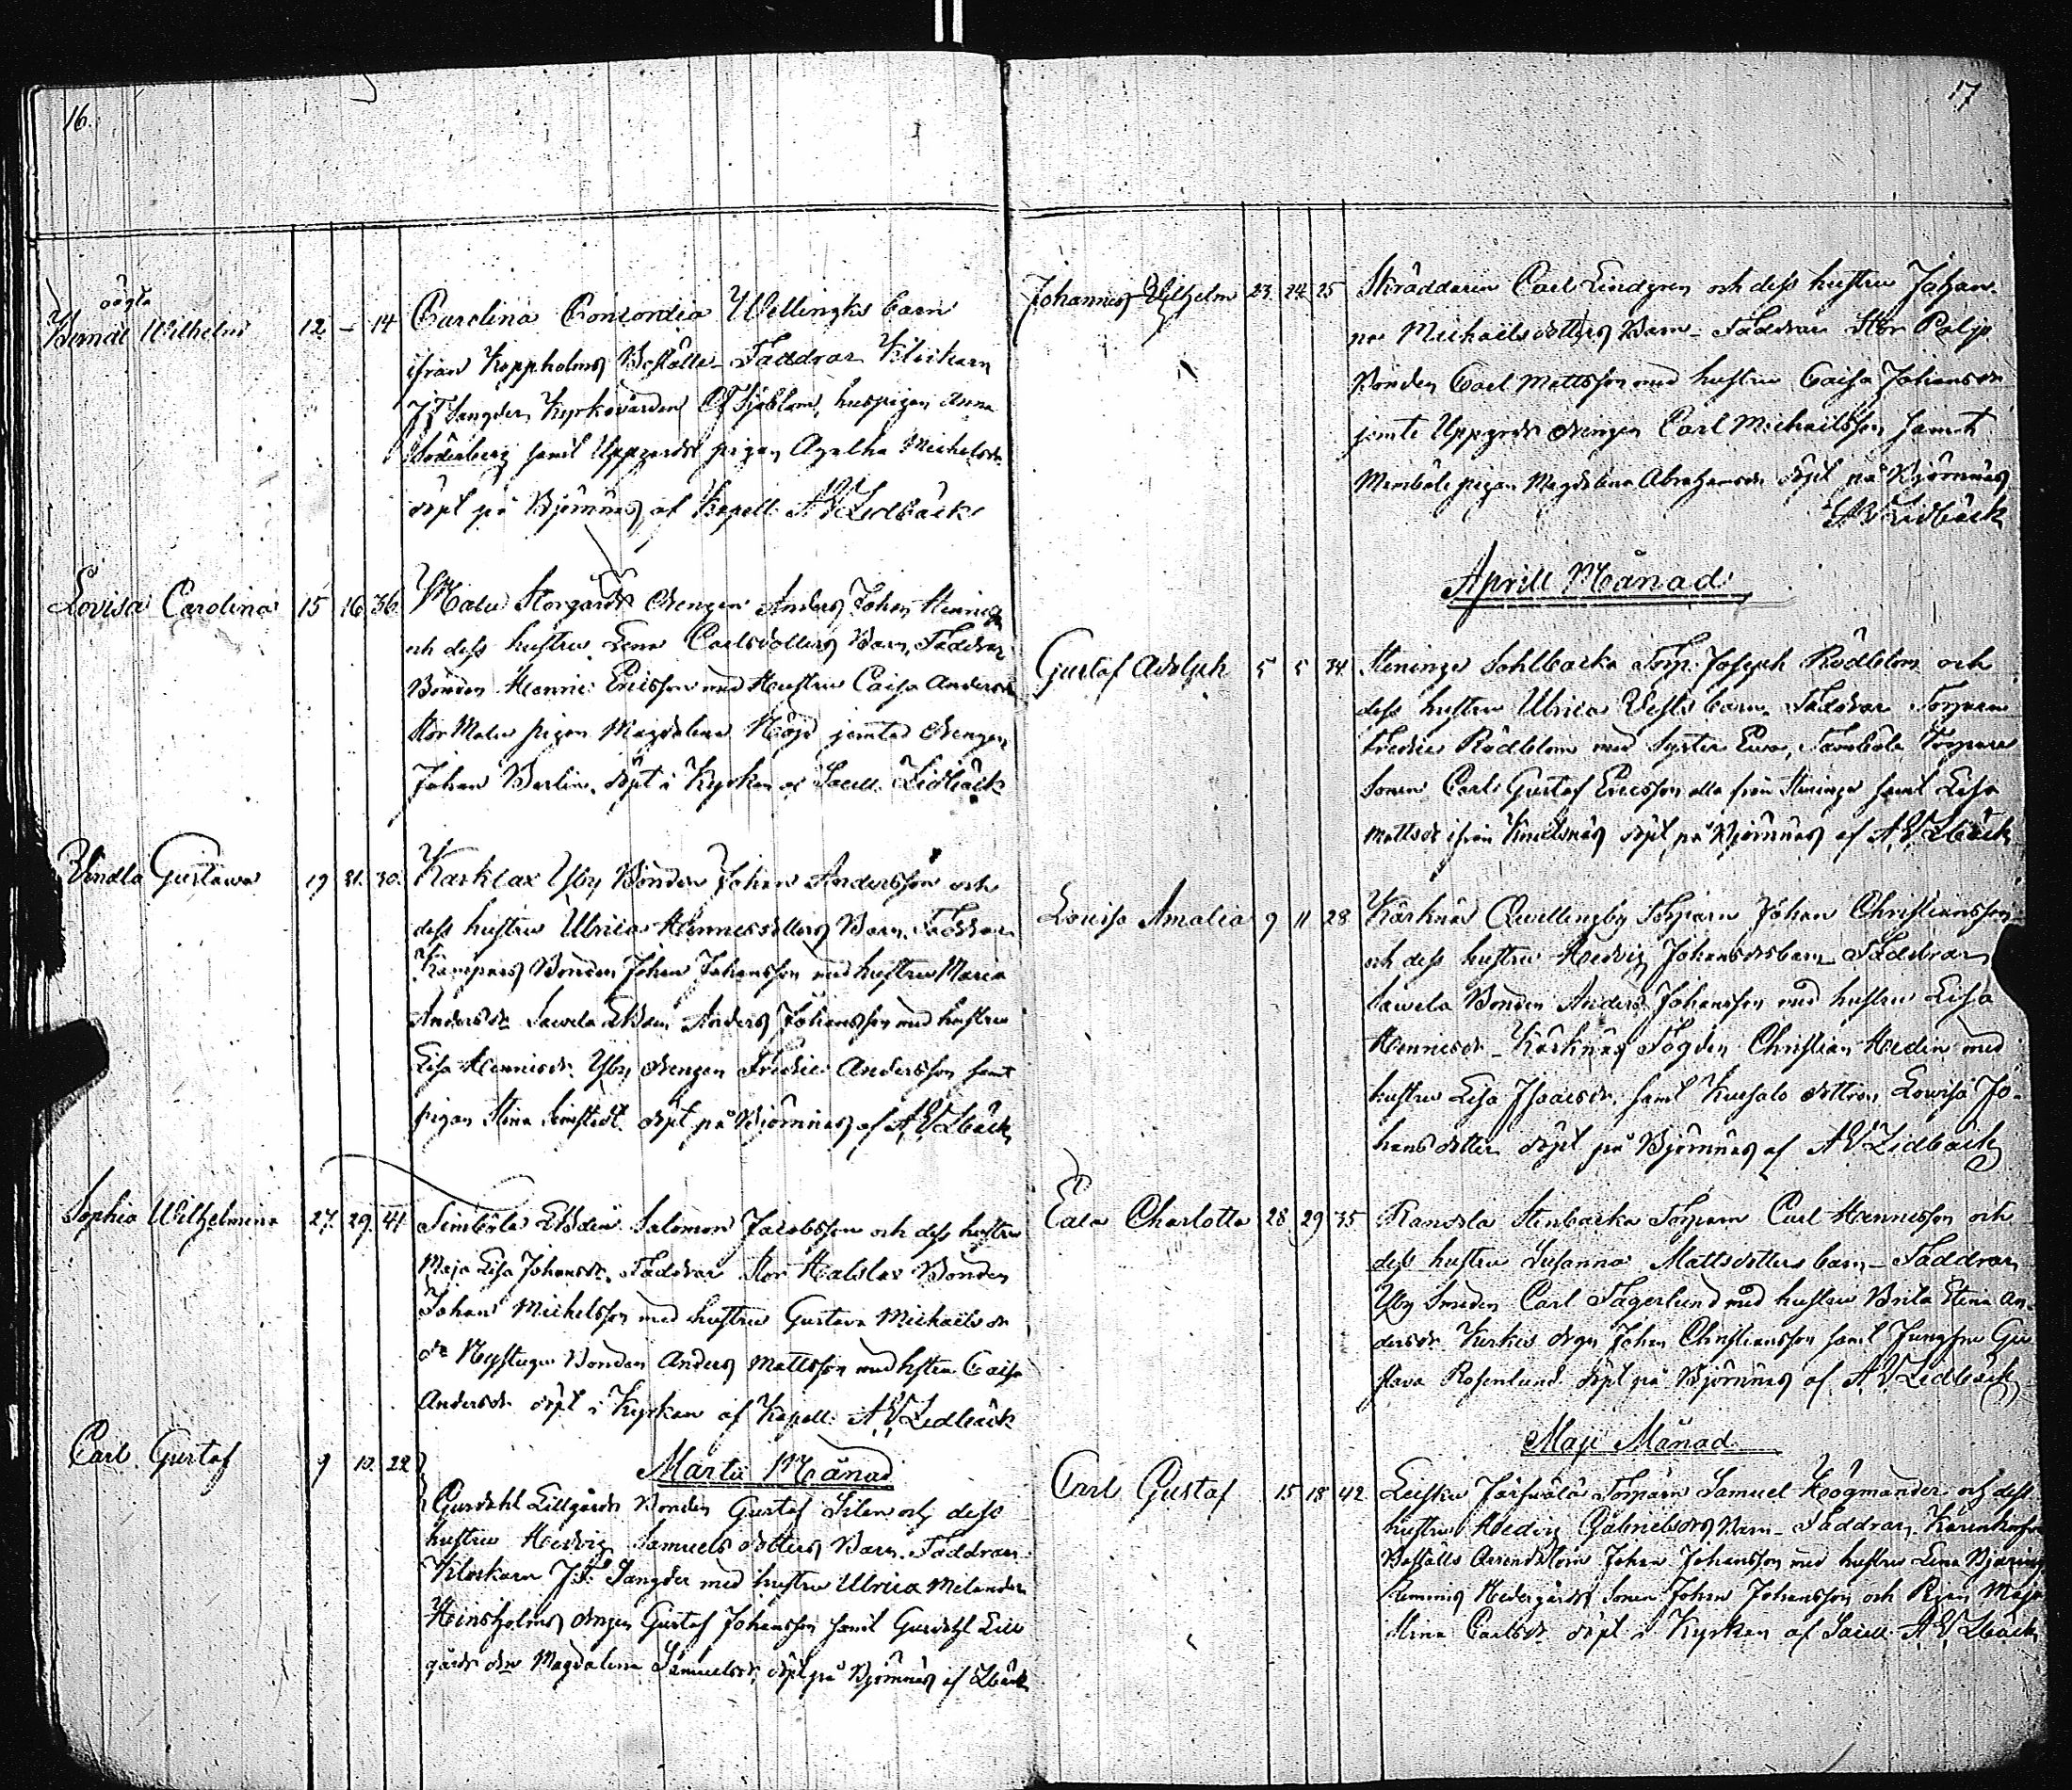 16.
oägta
Berndt Wilhelm 12 – 14 Carolina Concordia Wellingks barn
ifrån Koppholms Boställe – Faddrar Klockarn
J F Langder, Kyrkovärden C F Sjöblom, huspigan Anna
Söderberg samt Uppgårds pigan Agatha Michelsdr
döpt på Bjömnäs af Kapell: A V Lidbäck
Lovisa Carolina 15 16 36. Malu Storgårds drengen Anders Johan Hennics
och dess hustru Lena Carlsdotters Barn, Faddrar
Bonden Hennic Ericsson med Hustru Caisa Andersdr
Stor Malu pigan Magdalena Höjd jemte drengen
Johan Berlin. döpt i Kyrkan af Sacell. Lidbäck
Vendla Gustava 19 21. 30. Karklax Ysby Bonden Johan Andersson och
dess hustru Ulrica Hennicsdotters Barn. Faddrar
Kämpnäs Bonden Johan Johansson med hustru Maria
Andersdr Sawela Anders Johansson med hustru
Lisa Hennicsdr. Ysby drengen Fredric Andersson samt
pigan Stina döpt på Bjömnäs af A. V. Lbäck
Sophia Wilhelmina 27. 29. 41 Simböle Salomon Jacobsson och dess hustru
Maja Lisa Johansdr. Faddrar Stor Bonden
Johan Michelsson med hustru Gustava Michaëlsdr
dr Nystugu Bonden Anders Mattsson med hstru Caisa
Andersdr döpt i Kyrkan af Kapell: A. V. Lidbäck
Martii Månad
Carl Gustaf 9 10. 22 Gurdahl Lillgårds Bonden Gustaf Silen och dess
hustru Hedvig Samuelsdotters Barn. Faddrar
Klockarn J. F. Langder med hustru Ulrica Melander
Heinsholms drngen Gustaf Johansson samt Gurdahl Lill
gårds Magdalena Samuelsdr, döpt på Bjömnäs af Lbäck
17
Johannes Wilhelm 23. 24. 25 Skräddaren Carl Lindgren och dess hustru Johan-
na Michaëlsdotters Barn – Faddrar Stor Paljo
Bonden Carl Mattsson med hustru Caisa Johansdr
jemte Uppgårds drengen Carl Michaëlsson samt
Membole pigan Magdalena Abrahamsdr döpt på Bjömnäs
A V Lidbäck
Aprill Månad
Gustaf Adolph 5 5 34 Steninge Sohlbacka Torp. Joseph Rödblom och
dess hustru Ulrica barn. Faddrar Torparn
Fredric Rödblom med Syster Eva, Torpare
Sonen Carl Gustaf Ericsson alla från Steninge samt Lisa
Mattsdr ifrån Knutsnäs döpt på Bjömnäs af A. V. Lbäck
Lovisa Amalia 9 11 28. Kärknäs Quellingby Torparn Johan Christiansson
och dess hustru Hedvig Johansdrs barn – Faddrar
Sawela Bonden Anders Johansson med hustru Lisa
Hennicsdr – Kärknäs Fogden Christian Hedin med
hustru Lisa Isacsdr, samt Kuusalo dottren Lovisa Jo-
hansdotter döpt på Bjömnäs af A V Lidbäck
Eva Charlotta 28. 29 35 Stenbacka Torparn Carl Hennicsson och
dess hustru Susanna Mattsdotters barn – Faddrar
Ysby Smeden Carl Fagerlund med hustru Brita Stina An-
dersdr Kerkis drgn Johan Christiansson samt Jungfru Gu-
stava Rosenlund döpt på Bjömnäs af A. V. Lidbäck
Maji Månad
Carl Gustaf 15 18 42. Torparn Samuel Högmander och dess
hustru Hedvig Gabrielsdrs Barn – Faddrar,
Boställs Arrendatorn Johan Johansson med hustru Lena
Nedergårds Sonen Johan Johansson och Pigan Maja
Stina Carlsdr döpt i Kyrkan af Sacell. A. V. Lbäck